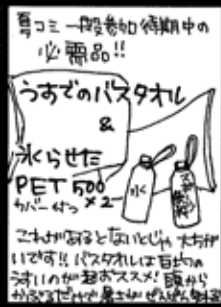 夏コミ一般参加待期中の
必需品!!
うすでのバスタオル
&
氷らせた
PET500
カバーせつ ×2
水
スポーツ飲料
これがあるとないとじゃ大ちがい
いです!! バスタオルは百均の
うすいのが超おススメ! 頭から